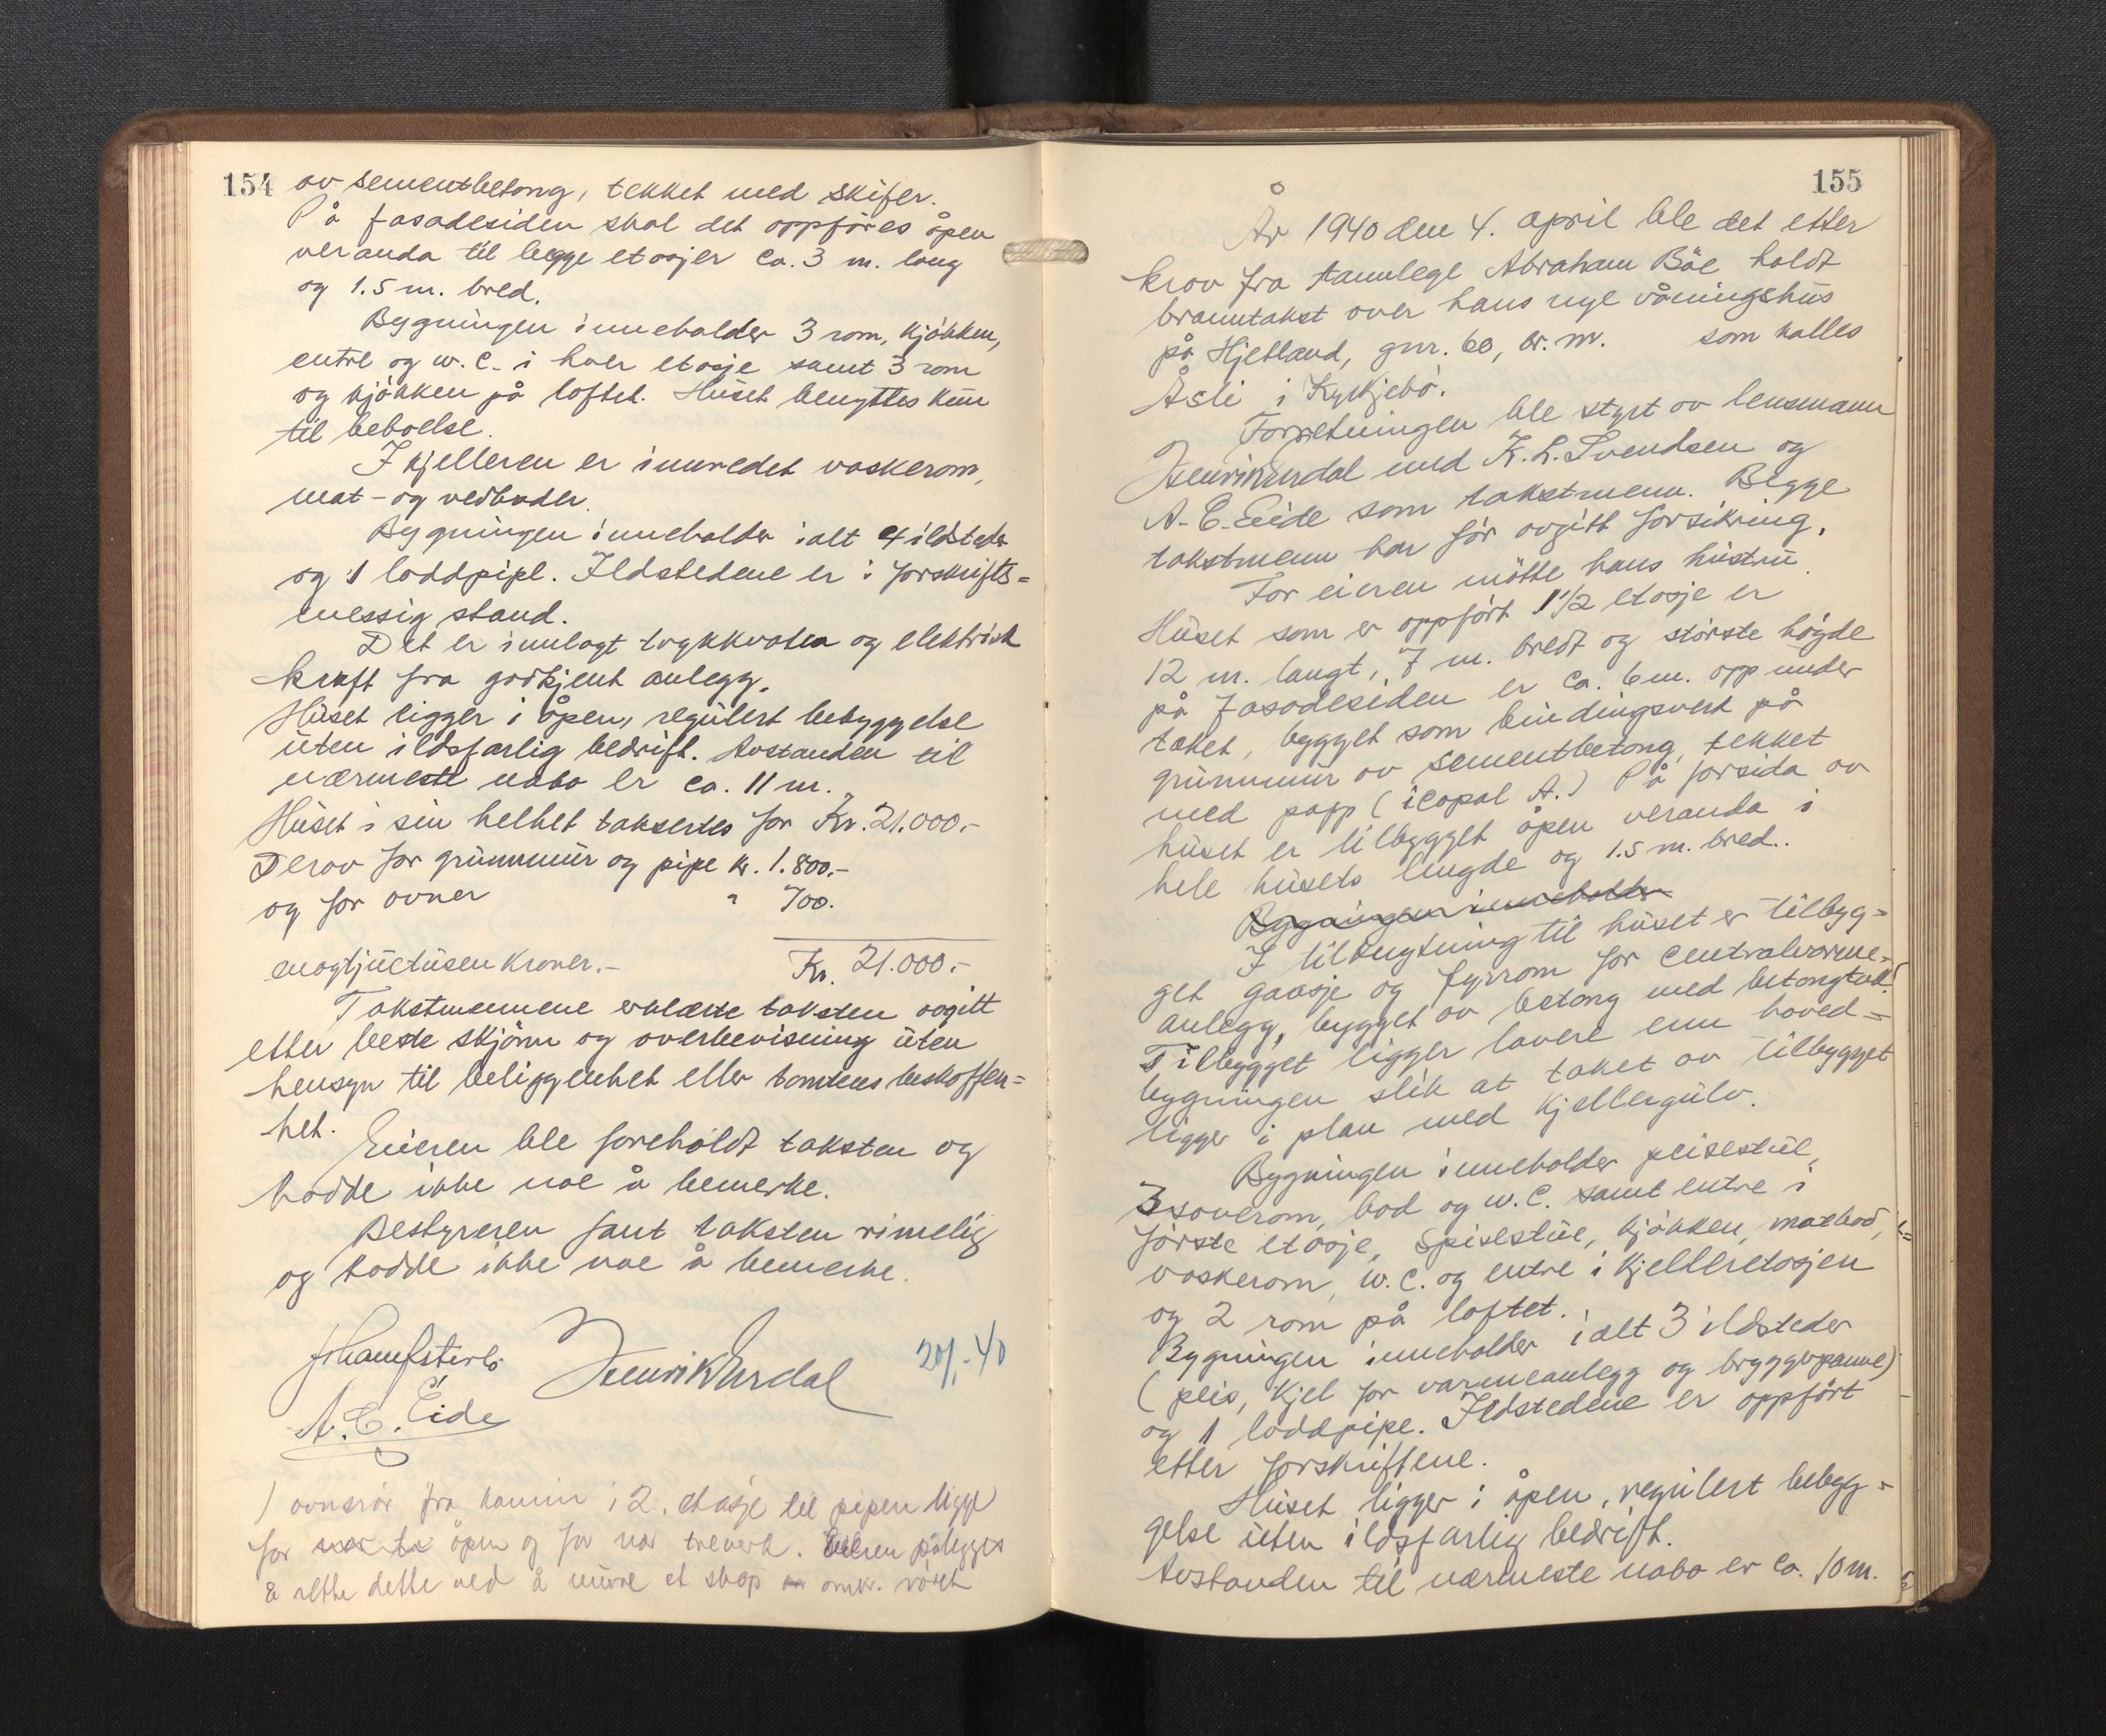 154
av sementbetong, tekket med skifer.
På fasadesiden skal det oppføres åpen
veranda til begge etasjer ca. 3 m. lang
og 1.5 m. bred.
Bygningen inneholder 3 rom, kjøkken,
entre og w.c. i hver etasje samt 3 rom
og kjøkken på loftet. Huset benyttes kun
til beboelse.
I kjelleren er innredet vaskerom,
mat- og vedboder.
Bygningen inneholder ialt 4 ildsteder
og 1 loddpipe. Ildstedene er i forskrifts=
messig stand.
Det er innlagt trykkvatn og elektrisk
kraft fra godkjent anlegg.
Huset ligger i åpen, regulert bebyggelse
uten ildsfarlig bedrift. Avstanden til
nærmeste nabo er ca. 11 m.
Huset i sin helhet takseres for Kr. 21.000.-
Derav for grunnmur og pipe kr. 1.800.-
og for ovner " 700.
enogtjuetusen kroner.- Kr. 21.000.-
Takstmennene erklærte taksten avgitt
etter beste skjønn og overbevisning uten
hensyn til beliggenhet eller tomtens beskaffen=
het.
Eieren ble foreholdt taksten og
hadde ikke noe å bemerke.
Bestyreren fant taksten rimelig
og hadde ikke noe å bemerke.
Henrik Erdal 20/,-40
A. E. Eide
) ovnsrør fra kamin i 2. etasje til pipen ligge
for åpen og for nær treverk. Eieren pålegges
å rette dette ved å mure et skap omkr. røret
155
År 1940 den 4. april ble det etter
krav fra tannlege Abraham Bøe holdt
branntakst over hans nye våningshus
på Hjetland, gnr. 60, br. nr. som kalles
Åsli i Kyrkjebø.
Forretningen ble styrt av lensmann
Henrik Erdal med K. L. Svendsen og
A. E. Eide som takstmenn. Begge
takstmenn har før avgitt forsikring.
For eieren møtte hans hustru.
Huset som er oppført 1 1/2 etasje er
12 m. langt, 7 m. bredt og største høgde
på fasadesiden er ca. 6 m. opp under
taket, bygget som bindingsverk på
grunnmur av sementbetong, tekket
med papp (icopal A.) På forsida av
huset er tilbygget åpen veranda i
hele husets lengde og 1.5 m. bred..
Bygningen inneholder
I tilknytning til huset er tilbyg=
get garasje og fyrrom for centralvarme-
anlegg, bygget av betong med betongtak.
Tilbygget ligger lavere enn hoved=
bygningen slik at taket av tilbygget
ligger i plan med kjellergulv.
Bygningen inneholder peisestue,
3 soverom, bod og w.c. samt entre i
første etasje, spisestue, kjøkken, matbod,
vaskerom, w.c. og entre i kjelleretasjen
og 2 rom på loftet.
Bygningen inneholder ialt 3 ildsteder
(peis, kjel for varmeanlegg og bryggepanne)
og 1 loddpipe. Ildstedene er oppført
etter forskriftene.
Huset ligger i åpen, regulert bebygg=
gelse uten ildsfarlig bedrift.
Avstanden til nærmeste nabo er ca. 10 m.